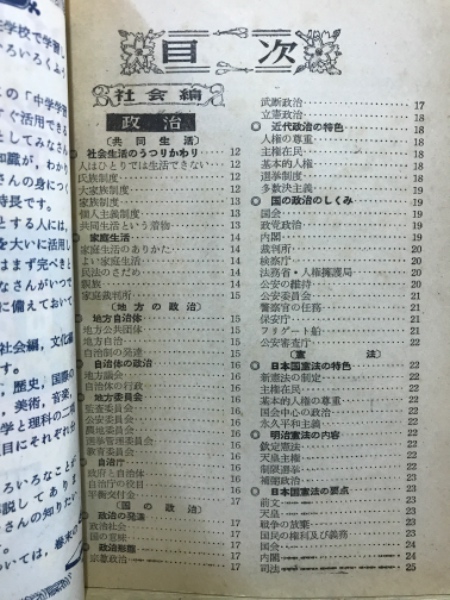 目次
社会編
政治
〔共同生活〕
◎ 社会生活のうつりかわり 12
人はひとりでは生活できない 12
氏族制度 12
大家族制度 12
家族制度 13
個人主義制度 13
共同生活という着物 13
◎ 家庭生活 14
家庭生活のありかた 14
よい家庭生活 14
民法のさだめ 14
親族 14
家庭裁判所 15
〔地方の政治〕
◎ 地方自治体 15
地方公共団体 15
地方自治 15
自治制の発達 15
◎ 自治体の政治 16
地方議会 16
自治体の行政 16
◎ 地方委員会 16
監査委員会 16
公安委員会 16
農地委員会 16
選挙管理委員会 16
教育委員会 16
◎ 自治庁 16
政府と自治体 16
自治庁の役目 16
平衡交付金 17
〔国の政治〕
◎ 政治の発達 17
政治社会 17
国の意味 17
◎ 政治形態 17
宗教政治 17
武断政治 17
立憲政治 18
◎ 近代政治の特色 18
人権の尊重 18
主権在民 18
基本的人権 18
選挙制度 18
多数決主義 19
◎ 国の政治のしくみ 19
国会 19
政党政治 19
内閣 19
裁判所 20
検察庁 20
法務省・人権擁護局 20
公安の維持 21
公安委員会 21
警察官の任務 21
保安庁 21
フリゲート船 21
公安審査庁 22
〔憲法〕
◎ 日本国憲法の特色 22
新憲法の制定 22
主権在民 22
基本的人権の尊重 22
国会中心の政治 22
永久平和主義 22
◎ 明治憲法の内容 22
欽定憲法 22
天皇主権 22
制限選挙 22
補弼政治 23
◎ 日本国憲法の要点 23
前文 23
天皇 23
戦争の放棄 23
国民の権利及び義務 23
国会 24
内閣 24
司法 25